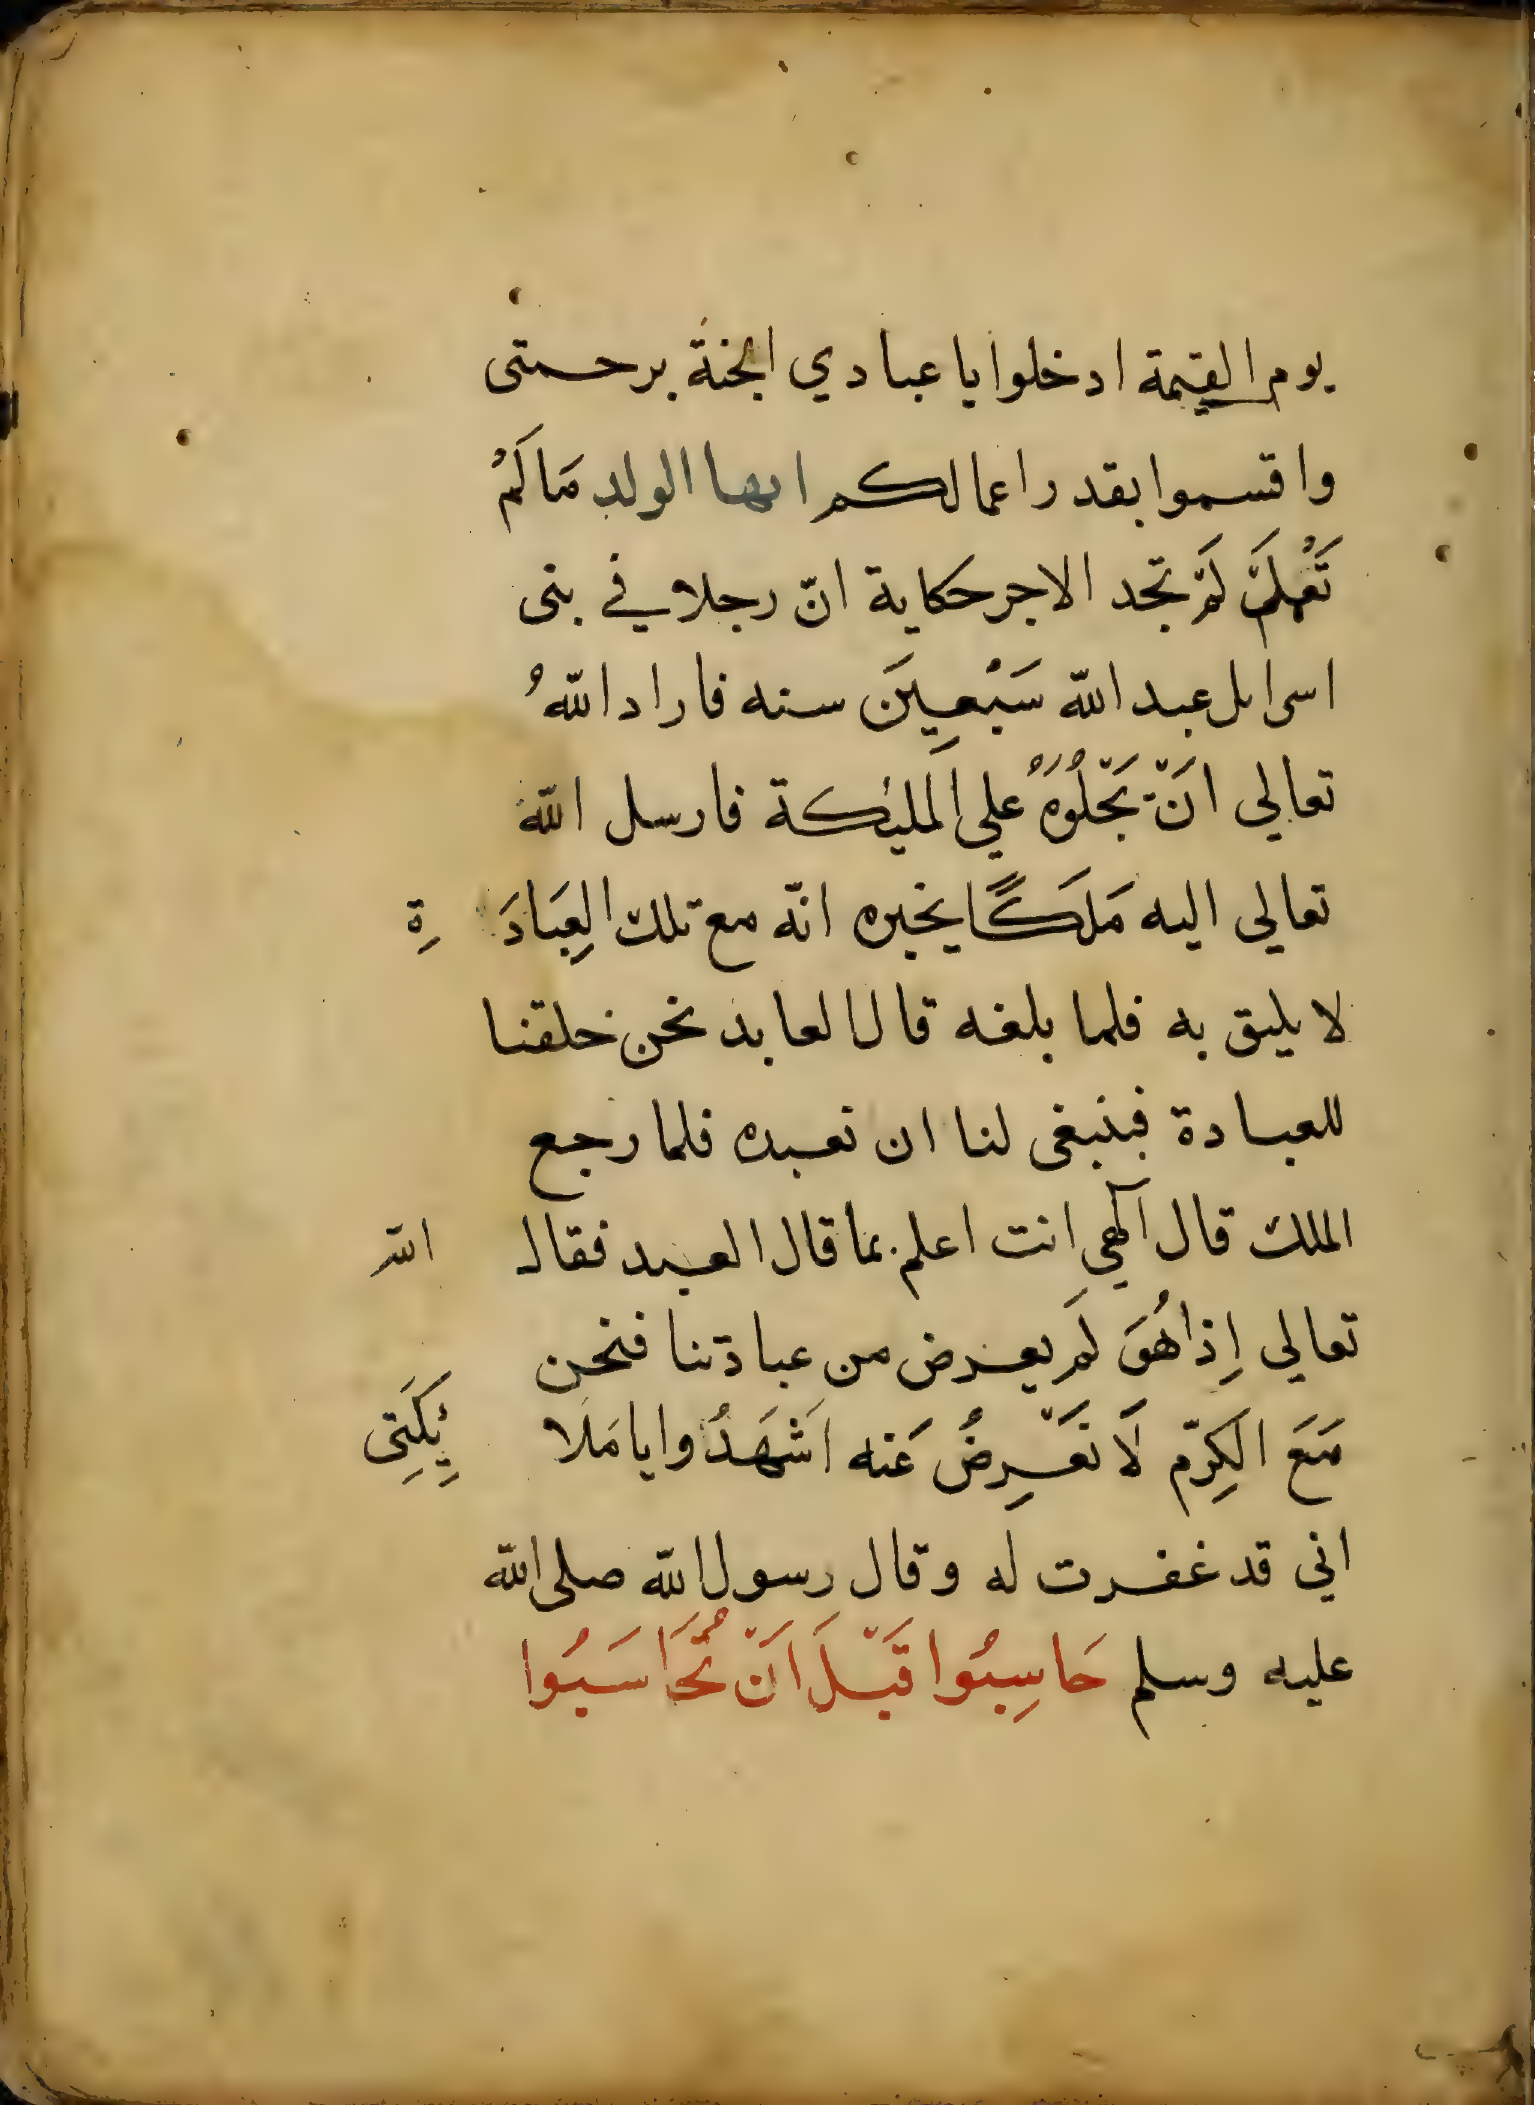 يوم القيمة ادخلوا يا عبادي الجنة برحمتى
واقسموا بقدر اعمالكم ايها الولد مَا لَمْ
تَعْمَلَ لَمْ تجد الاجر حكاية انّ رجلا في بنى
اسرايل عبد اللّه سَبْعِينَ سنه فاراد اللّهُ
تعالي انَ يَجْلُوَهُ علي الملئكة فارسل اللّه
تعالي اليه مَلَكًا يخبره انّه مع تلك العِبَادَةِ
لا يليق به فلما بلغه قال العابد نحن خلقنا
للعبادة فينبغى لنا ان نعبده فلما رجع
الملك قال آلهي انت اعلم بما قال العبد فقال اللّه
تعالي اِذَا هُوَ لَمْ يعرض من عبادتنا فنحن
مَعَ الكِرّم لَا نَعْرِضُ عَنه اَشْهَدُوا يا مَلَائِكَتِى
اني قد غفرت له وقال رسول اللّه صلى اللّه
عليه وسلم حَاسِبُوا قَبْلَ اَنْ تُحَاسَبُوا